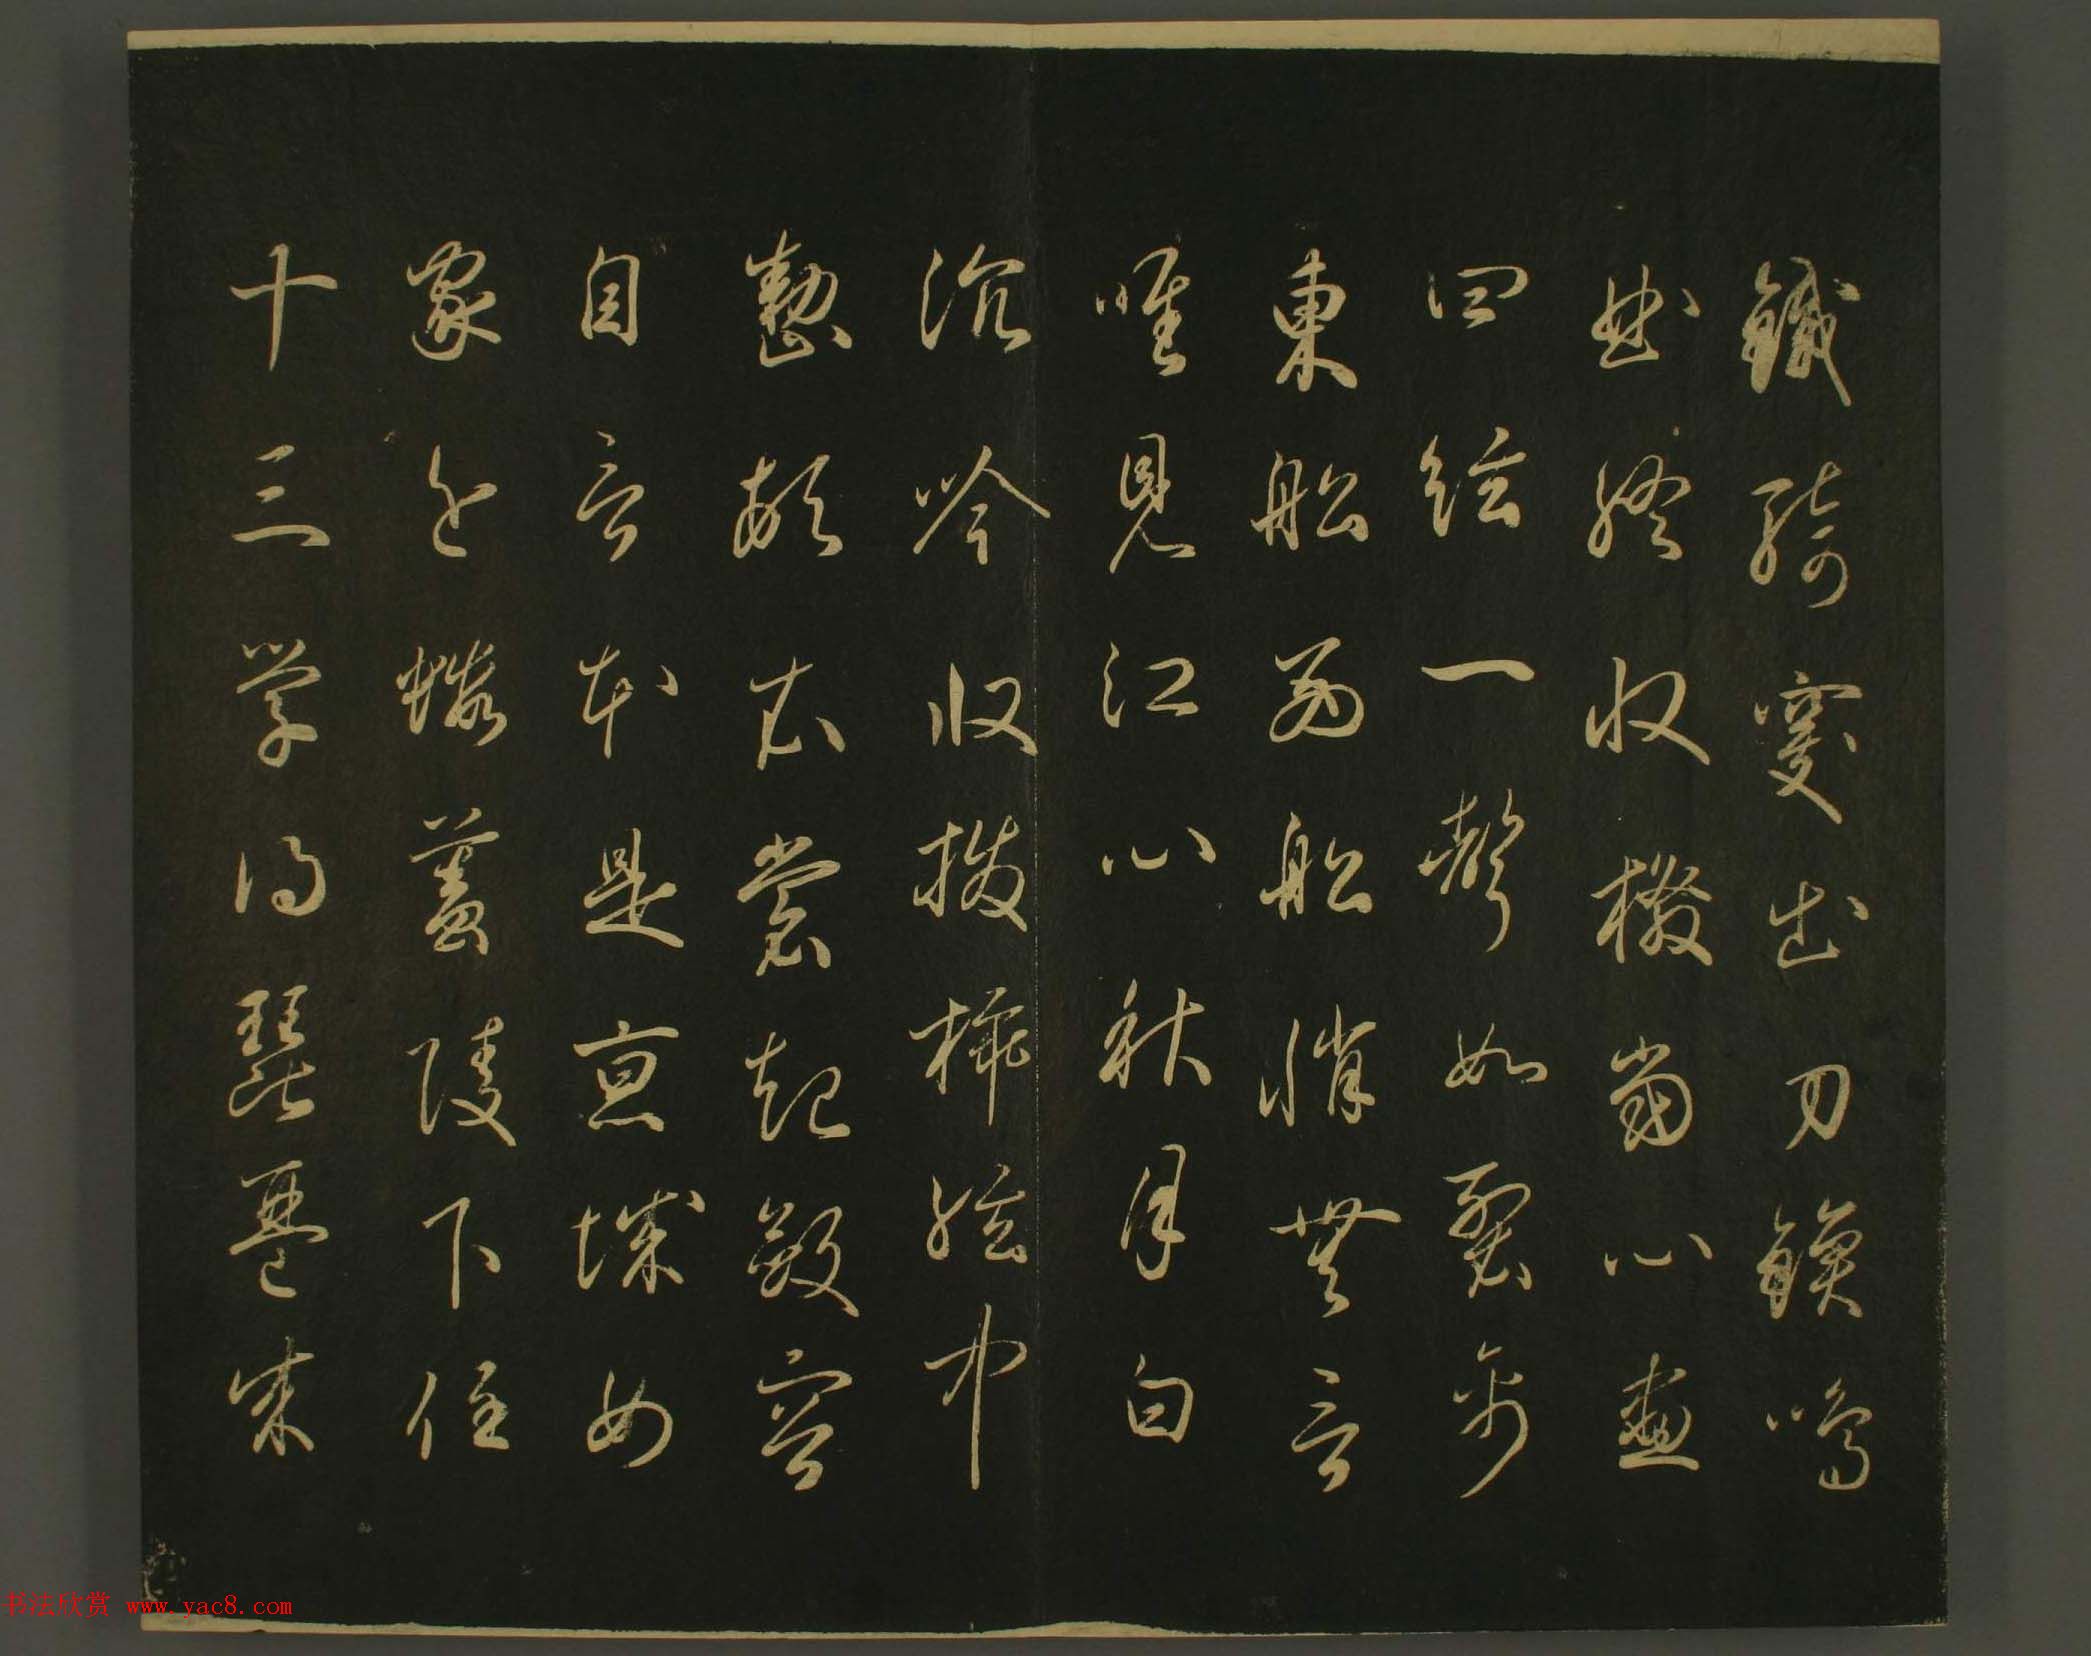 鐵騎突出刀鎗鳴
曲終收撥當心畫
四絃一聲如裂帛
東舩西舩悄無言
唯見江心秋月白
沉吟收撥插絃中
整頓衣裳起斂容
自言本是京城女
家在蝦蟇陵下住
十三學得琵琶成
书法欣赏 www.yac8.com